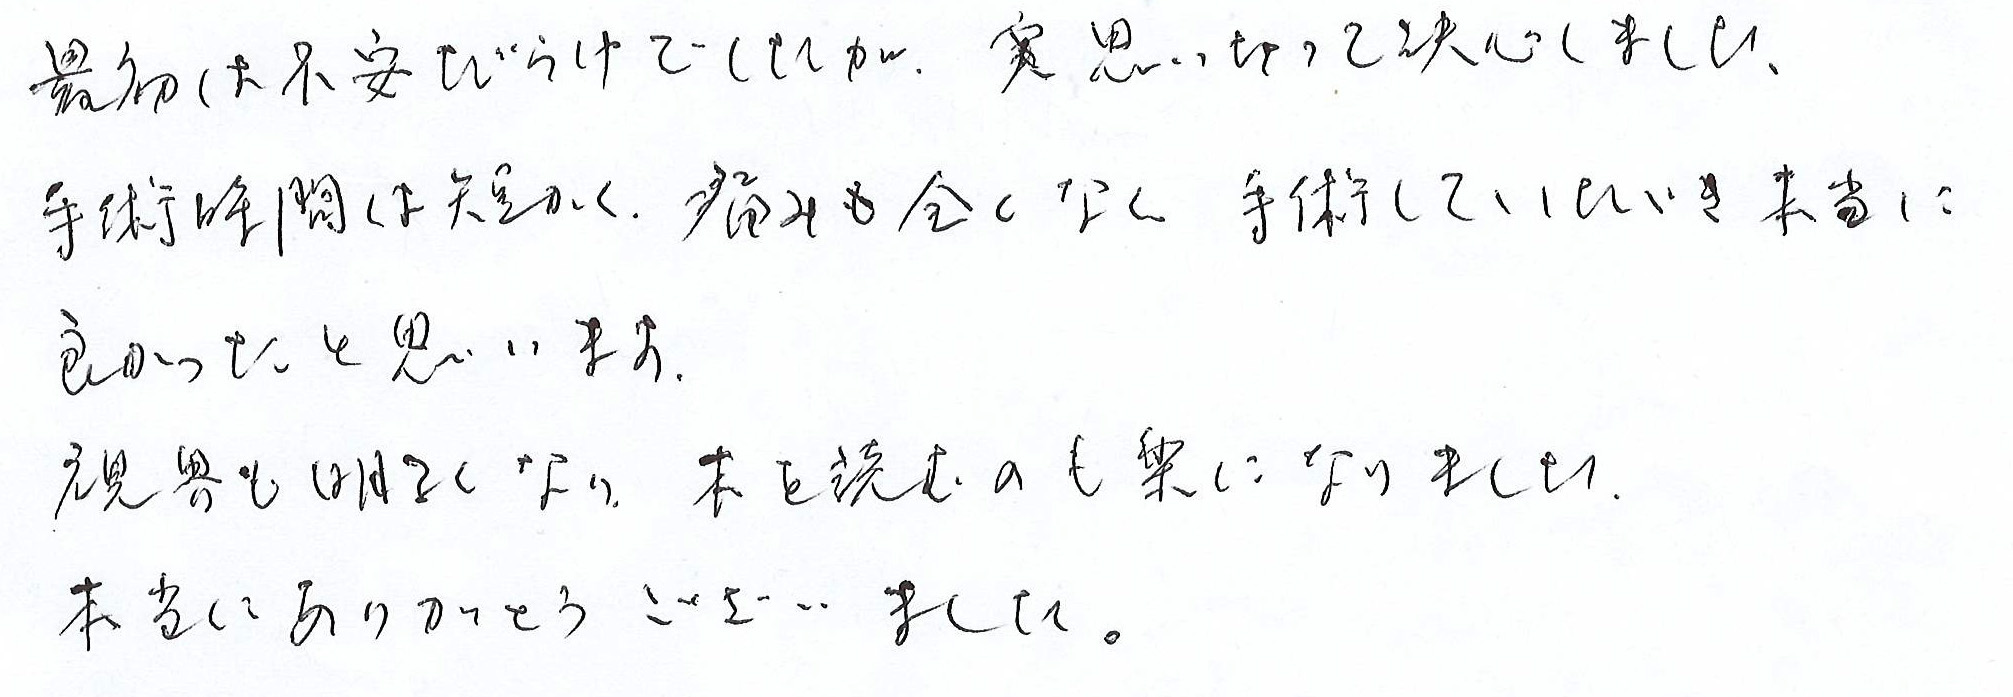 最初は不安だらけでしたが、実思い切って決心しました、
手術時間は短かく、痛みも全くなく 手術していただき本当に
良かったと思います。
視界も明るくなり、本を読むのも楽になりました。
本当にありがとうございました。